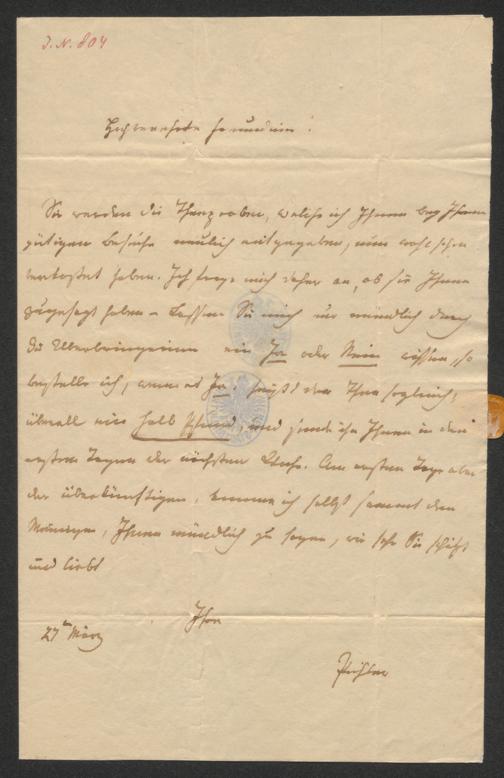 J. N. 804
Hochverehrte Freundinn!
Sie werden die Theeproben, welche ich Ihnen bey Ihrem
gütigen Besuche neulich mitgegeben, nun wohl schon
verkostet haben. Ich frage mich daher an, ob sie Ihnen
zugesagt haben – Lassen Sie mich nur mündlich durch
die Überbringerinn ein Ja oder Nein wissen, so
bestelle ich, wenn es Ja heißt den Thee sogleich,
überall ein halb Pfund, und sende ihn Ihnen in den
ersten Tagen der nächsten Woche. Am ersten Tage aber
der überkünftigen, komme ich selbst sammt den
Meinigen, Ihnen mündlich zu sagen, wie sehr Sie schätzt
und liebt
Ihre
27ten März
Pichler